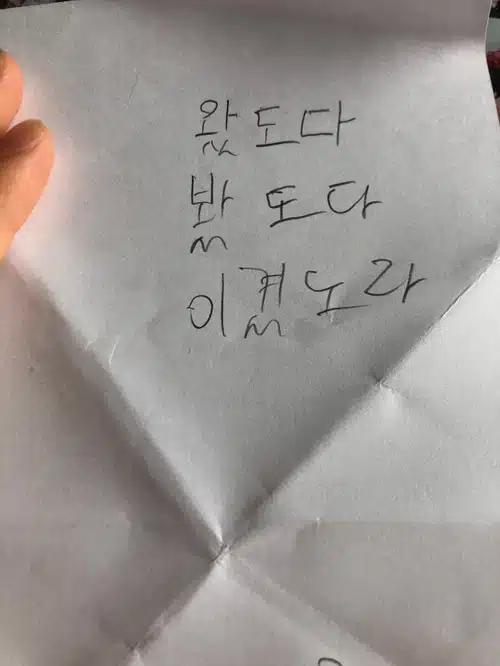 왔도다
봤도다
이겼노라